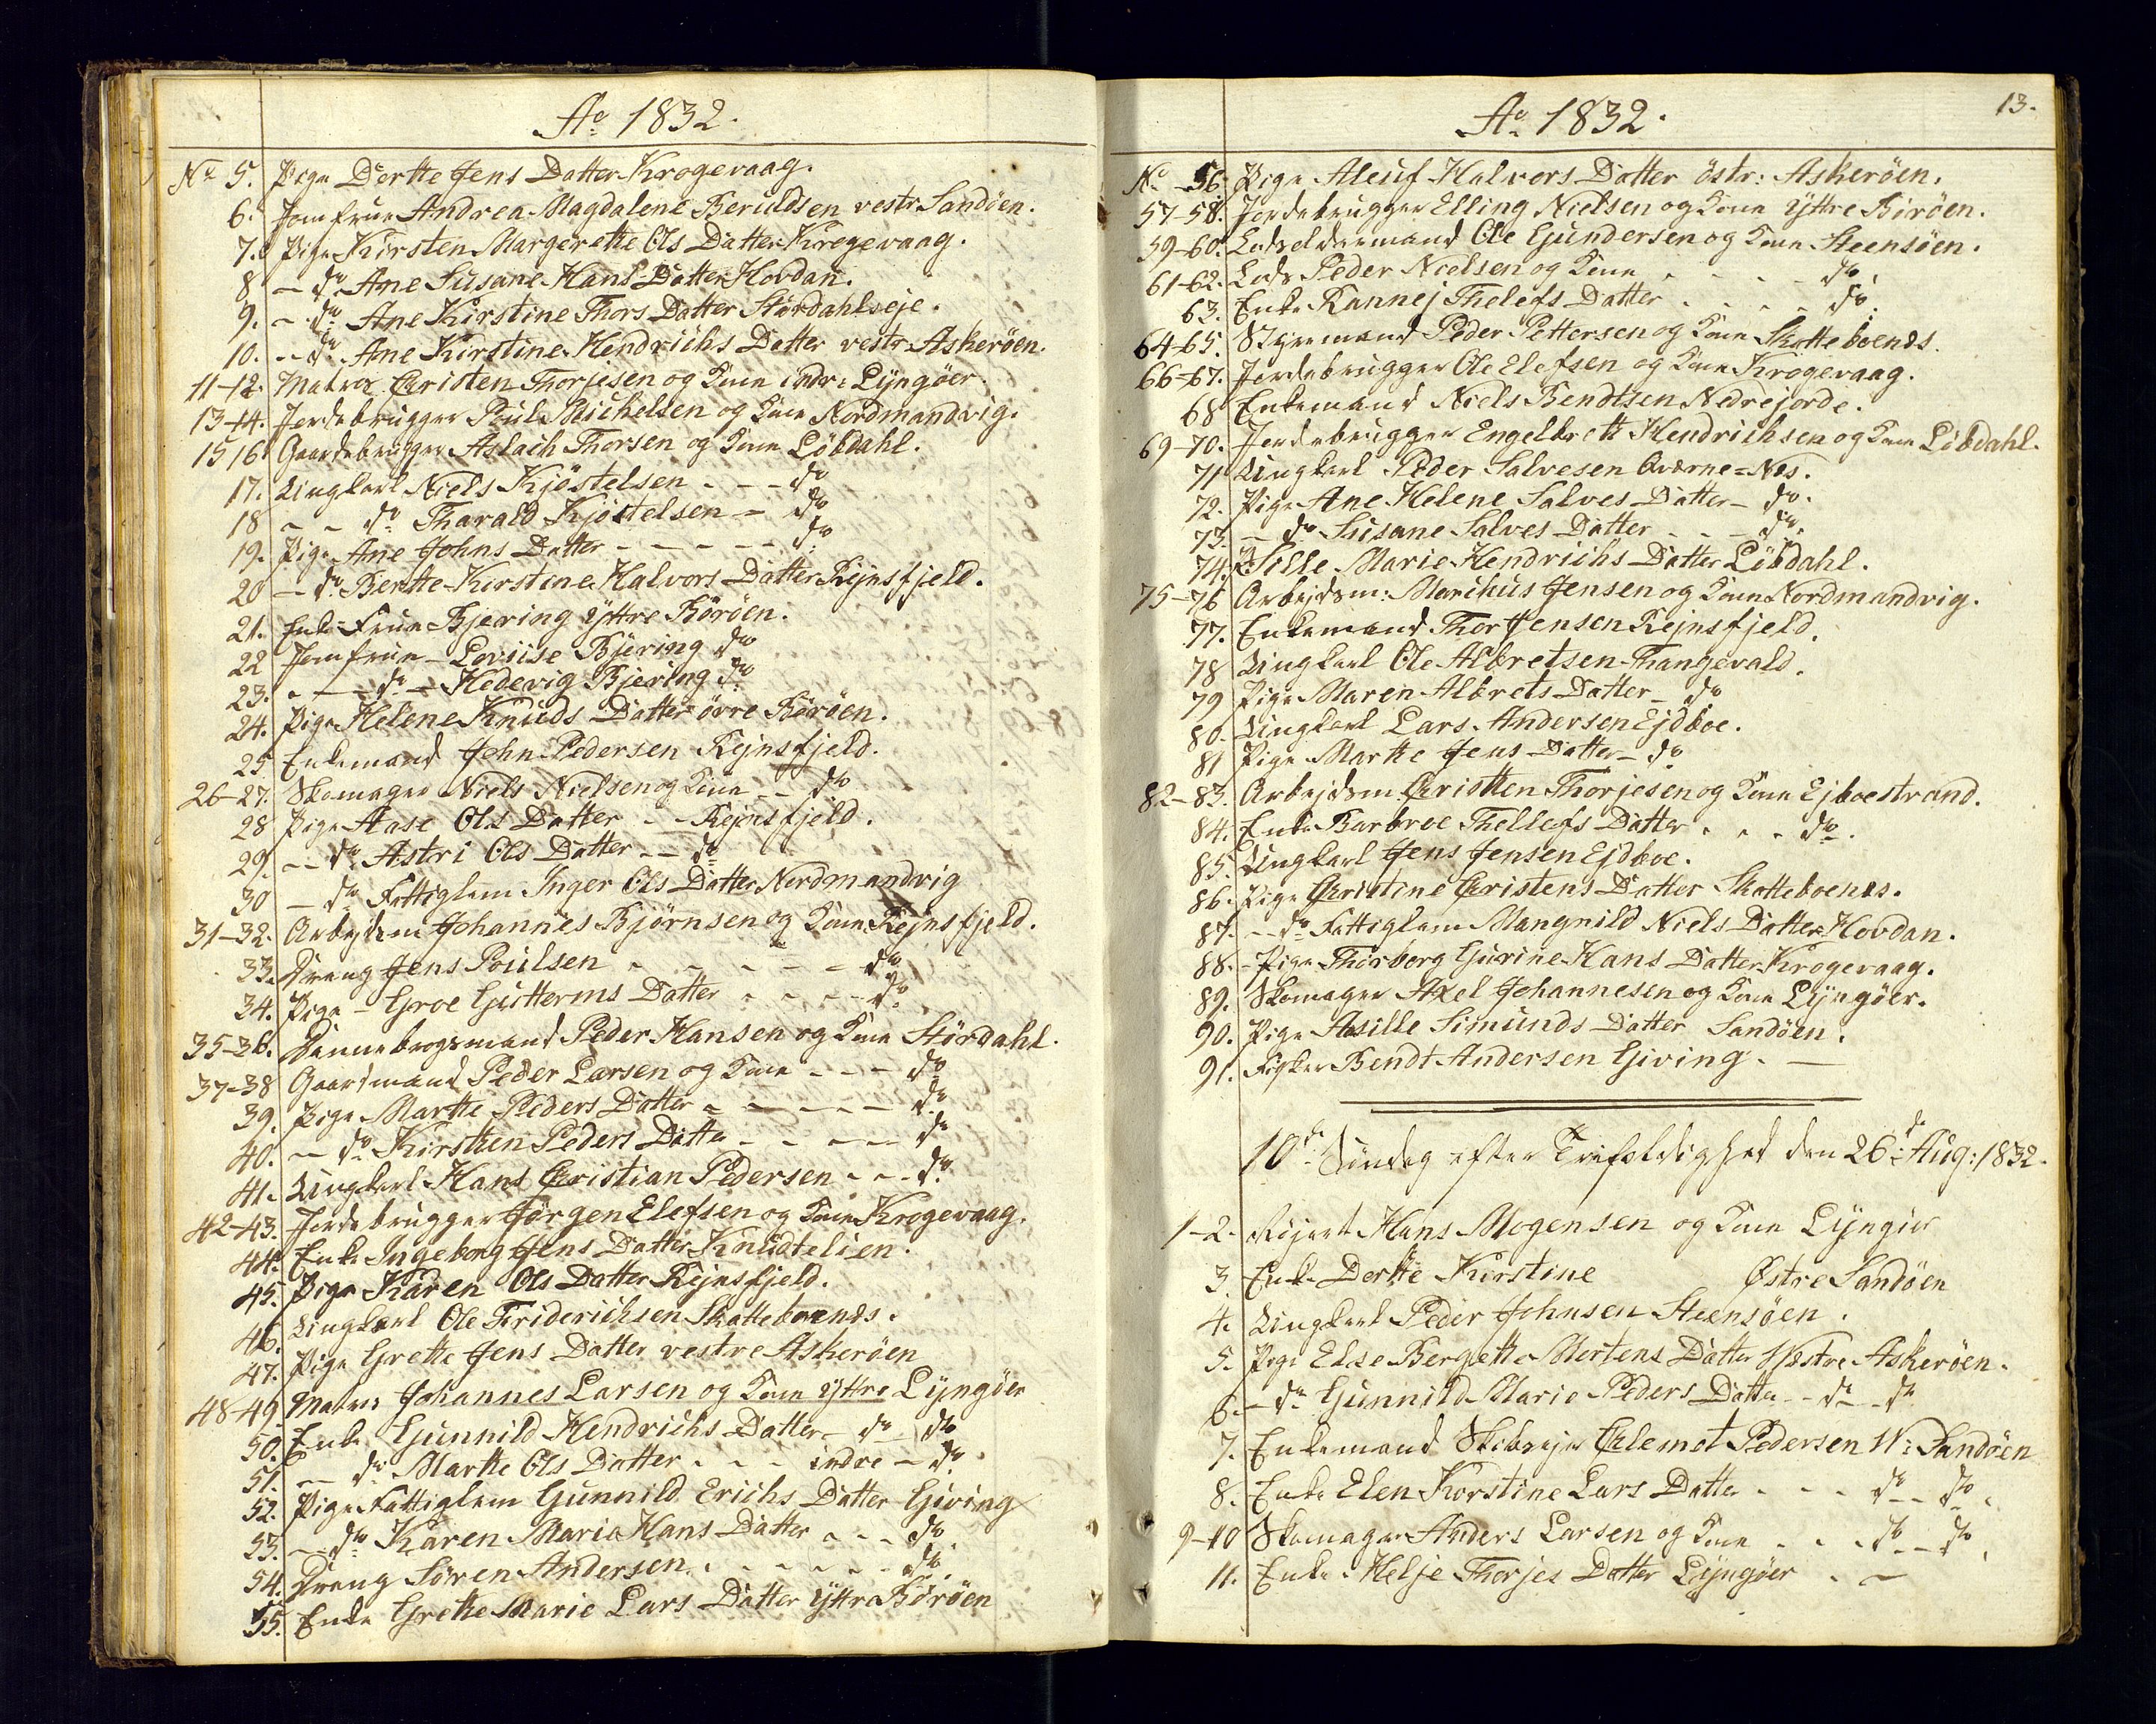 Ao 1832.
No 5. Pige Dorthe Jens Datter Krogevaag.
6. Jomfrue Andrea Magdalene Beruldsen vestr Sandöen.
7. Pige Kirsten Margerethe Ols Datter Krogevaag.
8 - do Ane Susane Hans Datter Hovdan.
9. - do Ane Kirstine Thors Datter Stördahlseje.
10. - do Ane Kirstine Hendrichs Datter vestr Askeröen.
11-12. Matros Christen Thorjesen og Kone indr: Lÿngöer.
13-14. Jordebrugger Poul Michelsen og Kone Nordmandvig.
15 16 Gaardebrugger Aslach Thorsen og Kone Löbdahl.
17. Ungkarl Niels Kjöstelsen - - - do
18 - - do Tharald Kjöstelsen - do
19. Pige Ane Johns Datter - - - - - do
20 - do Berthe Kirstine Halvors Datter Rejnsfjeld.
21. Enke-Frue Bjering ÿttre Böröen.
22 Jomfrue - Loviise Bjering do
23. - - - do - Hedevig Bjering do
24. Pige Helene Knuds Datter övre Böröen.
25 Enkemand John Pedersen Rejnsfjeld.
26-27. Skomager Niels Nielsen og Kone - - do
28 Pige Aase Ols Datter - - Rejnsfjeld.
29. - - do Astri Ols Datter - - do
30 - do Fattiglem Inger Ols Datter Nordmandvig
31-32. Arbejdsm Johannes Bjørnsen og Kone Rejnsfjeld.
33. Dreng Jens Poulsen - - - - - do
34. Pige - Groe Gutterms Datter - - - - do
35-36. Dannebrogsmand Peder Hansen og Kone Stördahl.
37-38 Gaardmand Peder Larsen og Kone - - - do
39. Pige Marthe Peders Datter - - - - - do
40. - do Kirsthen Peders Datter - - - - do
41. Ungkarl Hans Christian Pedersen - - - do
42-43. Jordebrugger Jörgen Elefsen og Kone Krogevaag.
44. Enke Ingeborg Jens Datter Knudtelien.
45. Pige Karen Ols Datter Rejnsfjeld.
46. Ungkarl Ole Friderichsen Skatteboenes.
47. Pige Grethe Jens Datter vestre Askeröen
48-49 Matros Johannes Larsen og Kone ÿttre Lÿngöer
50. Enke Gunnild Hendrichs Datter - do - do
51. - - do Marthe Ols Datter - - - indre - do
52. Pige Fattiglem Gunnild Erichs Datter Giving
53. - - do Karen Maria Hans Datter - - - do
54. Dreng Sören Andersen - - - - - - do
55. Enke Grethe Marie Lars Datter ÿttre Böröen
13.
Ao 1832.
No 56. Pige Aleuf Halvors Datter östr: Askeröen.
57-58. Jordebrugger Elling Nielsen og Kone ÿttre Böröen.
59-60. Lodsoldermand Ole Gundersen og Kone Steensöen.
61-62. Lods Peder Nielsen og Kone - - - - do
63. Enke Rannej Thelefs Datter - - - - do
64-65. Styrmand Peder Pettersen og Kone Skatteboenes.
66-67. Jordebrugger Ole Elefsen og Kone Krogevaag.
68 Enkemand Niels Bendtsen Nedrejorde.
69-70. Jordebrugger Engelbrett Hendrichsen og Kone Löbdahl.
71 Ungkarl Peder Salvesen Qværne=Næs.
72. Pige Ane Helene Salves Datter - do.
73. - do Susane Salves Datter - - - do.
74. P. Sille Marie Hendrichs Datter Löbdahl.
75-76 Arbejdsm: Marchus Jensen og Kone Nordmandvig.
77. Enkemand Thor Jensen Rejnsfjeld.
78 Ungkarl Ole Albretsen Thangevald.
79 Pige Maren Albrets Datter - do
80. Ungkarl Lars Andersen Ejdboe.
81 Pige Marthe Jens Datter - do
82-83. Arbejdsm Christen Thorjesen og Kone Ejboestrand.
84. Enke Barbroe Thellefs Datter - - - do.
85. Ungkarl Jens Jensen Ejdboe.
86. Pige Christine Christens Datter Skatteboenes.
87. - - do Fattiglem Mangnild Niels Datter Hovdan.
88. - Pige Thorborg Gurine Hans Datter Krogevaag.
89. Skomager Axel Johannesen og Kone Lÿngöer.
90. Pige Asille Simunds Datter Sandöen.
91. Fisker Bendt Andersen Giving. -
10de Søndag efter Trefoldighed den 26de Aug: 1832.
1-2. Hans Mogensen og Kone Lÿngöer
3. Enke Dorthe Kirstine Østre Sandöen
4. Ungkarl Peder Johnsen Steensöen.
5. Pige Else Bergette Mortens Datter Westre Askeröen.
6. - do Gunnild Marie Peders Datter - - do - do
7. Enkemand Clemet Pedersen W: Sandöen
8. Enke Elen Kirstine Lars Datter - - - do - - do.
9-10 Skomager Anders Larsen og Kone - - - do - - do.
11. Enke Helje Thorjes Datter Lÿngöer - -